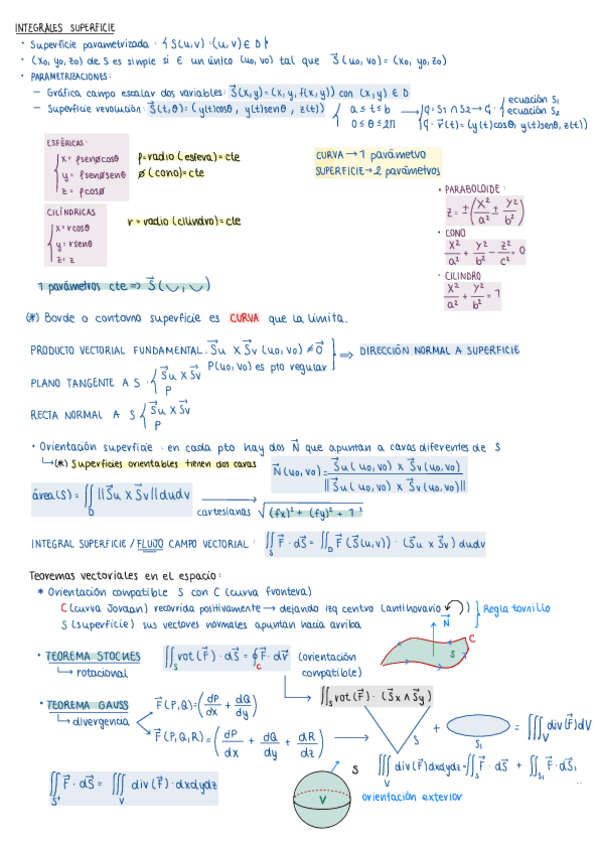 INTEGRALES SUPERFICIE
· Superficie parametrizada · { S(u,v) : (u,v) ∈ D }
· (xo, yo, zo) de S es simple si ∈ un único (uo, vo) tal que S⃗(uo, vo) = (xo, yo, zo)
· PARAMETRIZACIONES:
— Gráfica campo escalar dos variables: S⃗(x,y) = (x, y, f(x,y)) con (x,y) ∈ D
— Superficie revolución: S⃗(t,θ) = (y(t)cosθ, y(t)senθ, z(t)) { a ≤ t ≤ b
0 ≤ θ ≤ 2π
→ { φ = S1 ∩ S2 → φ · { ecuación S1
ecuación S2
φ · r⃗(t) = (y(t)cosθ, y(t)senθ, z(t))
ESFÉRICAS:
{ x = ρsenøcosθ
y = ρsenøsenθ
z = ρcosø
ρ = radio (esfera) = cte
ø (cono) = cte
CURVA → 1 parámetro
SUPERFICIE → 2 parámetros
CILÍNDRICAS
{ x = rcosθ
y = rsenθ
z = z
r = radio (cilindro) = cte
· PARABOLOIDE:
z = ± ( x²/a² ± y²/b² )
· CONO
x²/a² + y²/b² − z²/c² = 0
· CILINDRO
x²/a² + y²/b² = 1
1 parámetros cte ⇒ S⃗(‿,‿)
(*) Borde o contorno superficie es CURVA que la limita.
PRODUCTO VECTORIAL FUNDAMENTAL: S⃗u x S⃗v (uo, vo) ≠ 0⃗
P(uo, vo) es pto regular } ⟹ DIRECCIÓN NORMAL A SUPERFICIE
PLANO TANGENTE A S · { S⃗u x S⃗v
P
RECTA NORMAL A S { S⃗u x S⃗v
P
· Orientación superficie : en cada pto hay dos N⃗ que apuntan a caras diferentes de S
↳ (*) Superficies orientables tienen dos caras
N⃗(uo, vo) = S⃗u(uo, vo) x S⃗v(uo, vo) / ||S⃗u(uo, vo) x S⃗v(uo, vo)||
área(S) = ∬D ||S⃗u x S⃗v|| dudv → cartesianas √((fx)² + (fy)² + 1²)
INTEGRAL SUPERFICIE / FLUJO CAMPO VECTORIAL : ∬S F⃗ · dS⃗ = ∬D F⃗(S⃗(u,v)) · (S⃗u x S⃗v) dudv
Teoremas vectoriales en el espacio:
* Orientación compatible S con C (curva frontera)
C (curva Jordan) recorrida positivamente → dejando izq centro (antihorario)
S (superficie) sus vectores normales apuntan hacia arriba
} Regla tornillo
N⃗
C
S
· TEOREMA STOCKES
↳ rotacional
∬S rot(F⃗) · dS⃗ = ∮C F⃗ · dr⃗ (orientación
compatible)
∬S rot(F⃗) · (S⃗x ∧ S⃗y)
· TEOREMA GAUSS
↳ divergencia
F⃗(P,Q) = ( dP/dx + dQ/dy )
F⃗(P,Q,R) = ( dP/dx + dQ/dy + dR/dz )
S + S1 = ∭V div(F⃗)dV
∭V div(F⃗)dxdydz = ∬S F⃗ · dS⃗ + ∬S1 F⃗ · dS⃗1
∬S⁺ F⃗ · dS⃗ = ∭V div(F⃗) · dxdydz
S
V
orientación exterior